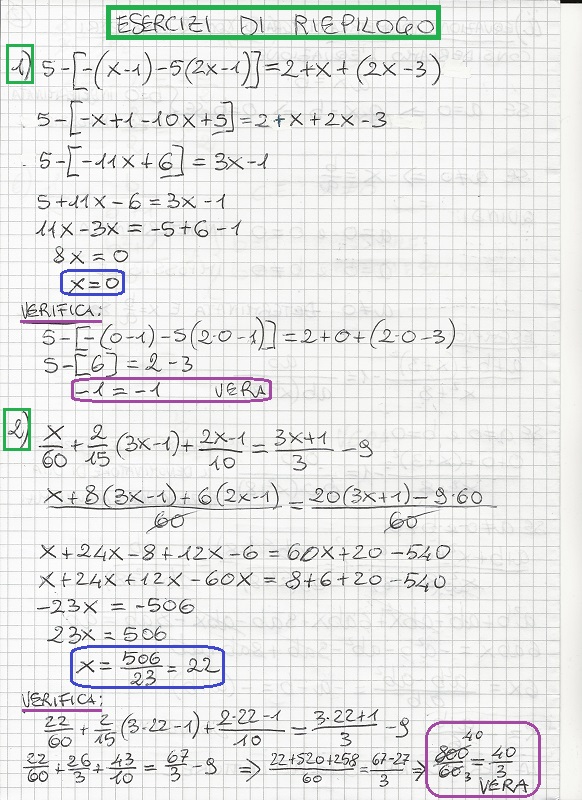 ESERCIZI DI RIEPILOGO
1) 5-[-(x-1)-5(2x-1)]=2+x+(2x-3)
5-[-x+1-10x+5]=2+x+2x-3
5-[-11x+6]=3x-1
5+11x-6=3x-1
11x-3x=-5+6-1
8x=0
x=0
VERIFICA:
5-[-(0-1)-5(2·0-1)]=2+0+(2·0-3)
5-[6]=2-3
-1=-1 VERA
2) x/60+2/15(3x-1)+(2x-1)/10=(3x+1)/3-9
(x+8(3x-1)+6(2x-1))/60=(20(3x+1)-9·60)/60
x+24x-8+12x-6=60x+20-540
x+24x+12x-60x=8+6+20-540
-23x=-506
23x=506
x=506/23=22
VERIFICA:
22/60+2/15(3·22-1)+(2·22-1)/10=(3·22+1)/3-9
22/60+26/3+43/10=67/3-9 ⇒ (22+520+258)/60=(67-27)/3 ⇒ 800/60=40/3
40
3
VERA